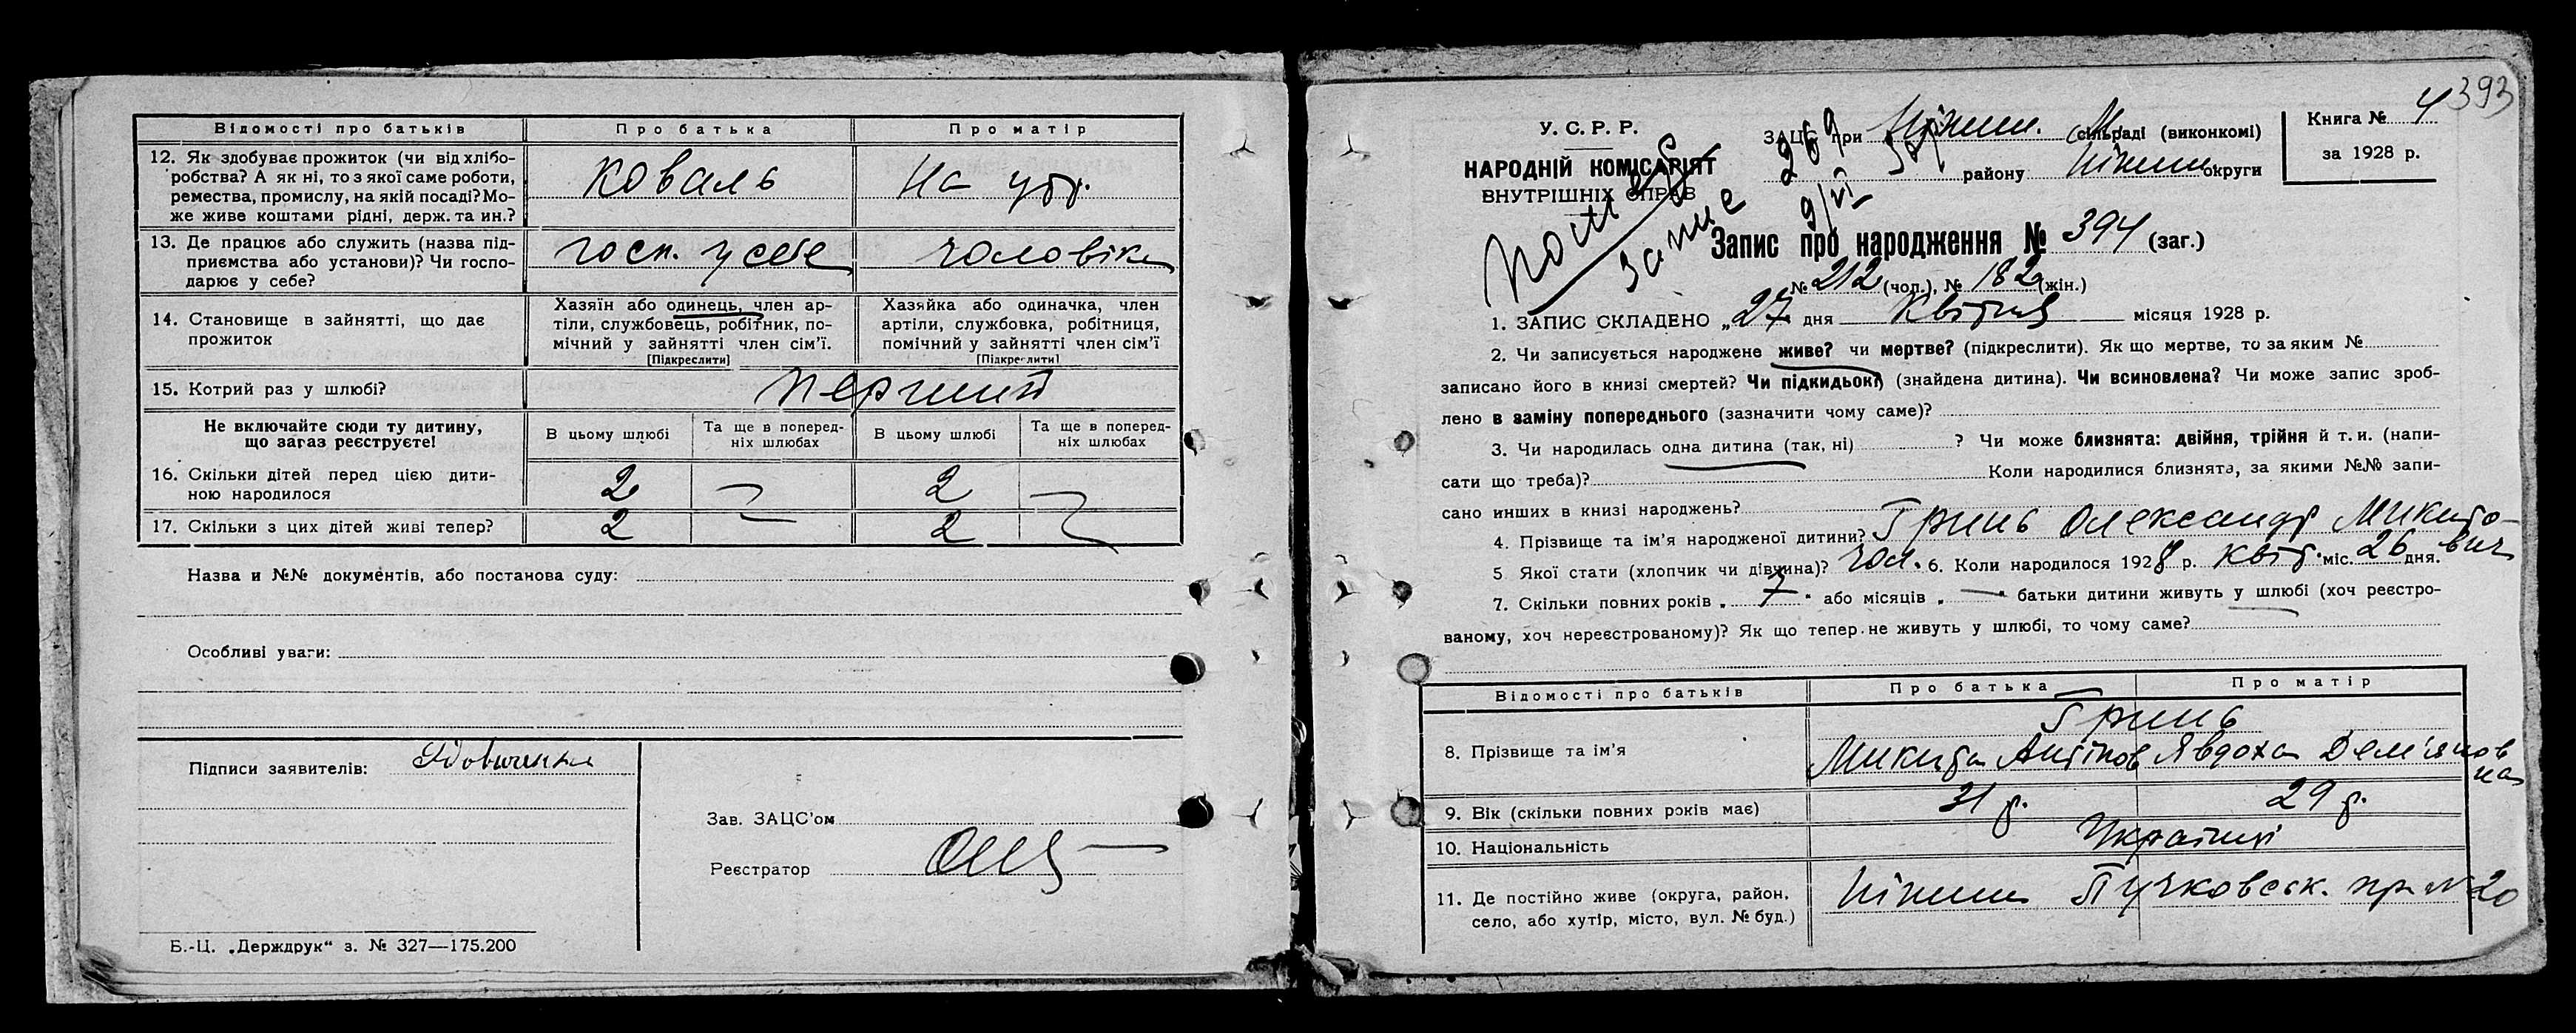 Відомості про батьків Про батька Про матір
12. Як здобуває прожиток (чи від хлібо-
робства? А як ні, то з якої саме роботи,
ремества, промислу, на якій посаді? Мо-
же живе коштами рідні, держ. та ин.?
Коваль На утр.
13. Де працює або служить (назва під-
приємства або установи)? Чи госпо-
дарює у себе?
госп. у себе чоловіка
14. Становище в зайнятті, що дає
прожиток
Хазяїн або одинець, член ар-
тілі, службовець, робітник, по-
мічний у зайнятті член сім'ї.
[Підкреслити]
Хазяйка або одиначка, член
артілі, службовка, робітниця,
помічний у зайнятті член сім'ї
[Підкреслити]
15. Котрий раз у шлюбі? перший
Не включайте сюди ту дитину,
що зараз реєструєте!
В цьому шлюбі Та ще в поперед-
ніх шлюбах В цьому шлюбі Та ще в поперед-
ніх шлюбах
16. Скільки дітей перед цією дити-
ною народилося 2 — 2 —
17. Скільки з цих дітей живі тепер? 2 — 2
Назва и №№ документів, або постанова суду:
Особливі уваги:
Підписи заявителів:
Зав. ЗАЦС'ом
Реєстратор
Б.-Ц. „Держдрук“ з. № 327—175.200
393
У. С. Р. Р.
НАРОДНІЙ КОМІСАРІЯТ
ВНУТРІШНІХ СПРАВ
ЗАЦС при Ніжин. М. сільраді (виконкомі)
району Ніжин округи
Книга № 4
за 1928 р.
269
9/VI
Запис про народження № 394 (заг.)
№ 212 (чол.), № 182 (жін.)
1. ЗАПИС СКЛАДЕНО „27 дня Квітня місяця 1928 р.
2. Чи записується народжене живе? чи мертве? (підкреслити). Як що мертве, то за яким №
записано його в книзі смертей? Чи підкидьок? (знайдена дитина). Чи всиновлена? Чи може запис зроб-
лено в заміну попереднього (зазначити чому саме)?
3. Чи народилась одна дитина (так, ні) ? Чи може близнята: двійня, трійня й т. и. (напи-
сати що треба)? Коли народилися близнята, за якими №№ запи-
сано инших в книзі народжень?
4. Прізвище та ім'я народженої дитини? Гринь Олександр Микито-
вич
5 Якої стати (хлопчик чи дівчина)? чол. 6. Коли народилося 1928 р. квіт. міс. 26 дня.
7. Скільки повних років „ 7 “ або місяців „ — “ батьки дитини живуть у шлюбі (хоч реєстро-
ваному, хоч нереєстрованому)? Як що тепер не живуть у шлюбі, то чому саме?
Відомості про батьків Про батька Про матір
Гринь
8. Прізвище та ім'я Микита Антінов Явдоха Дем'янов
на
9. Вік (скільки повних років має) 31 р. 29 р.
10. Національність Українці
11. Де постійно живе (округа, район,
село, або хутір, місто, вул. № буд.)
Ніжин Пучковськ. пр. № 20